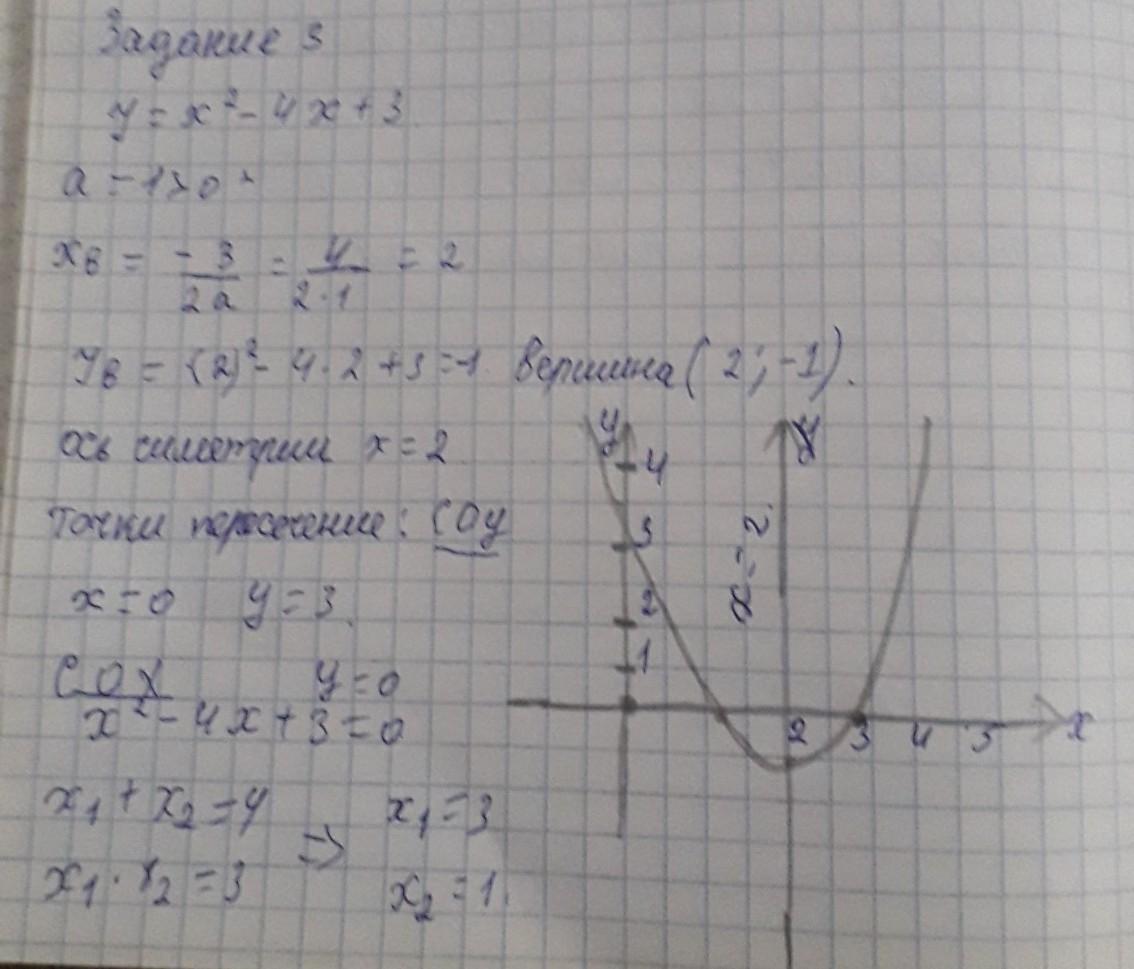 Задание 3
y = x² - 4x + 3
a = 1 > 0
xв = -3/2a = 4/2·1 = 2
yв = (2)² - 4·2 + 3 = -1 Вершина (2; -1).
ось симетрии x = 2
точки пересечение: С Оy
x = 0 y = 3.
С ОХ y = 0
x² - 4x + 3 = 0
x₁ + x₂ = 4 => x₁ = 3
x₁ · x₂ = 3 x₂ = 1.
y
4
3
2
1
x = 2
2 3 4 5 x